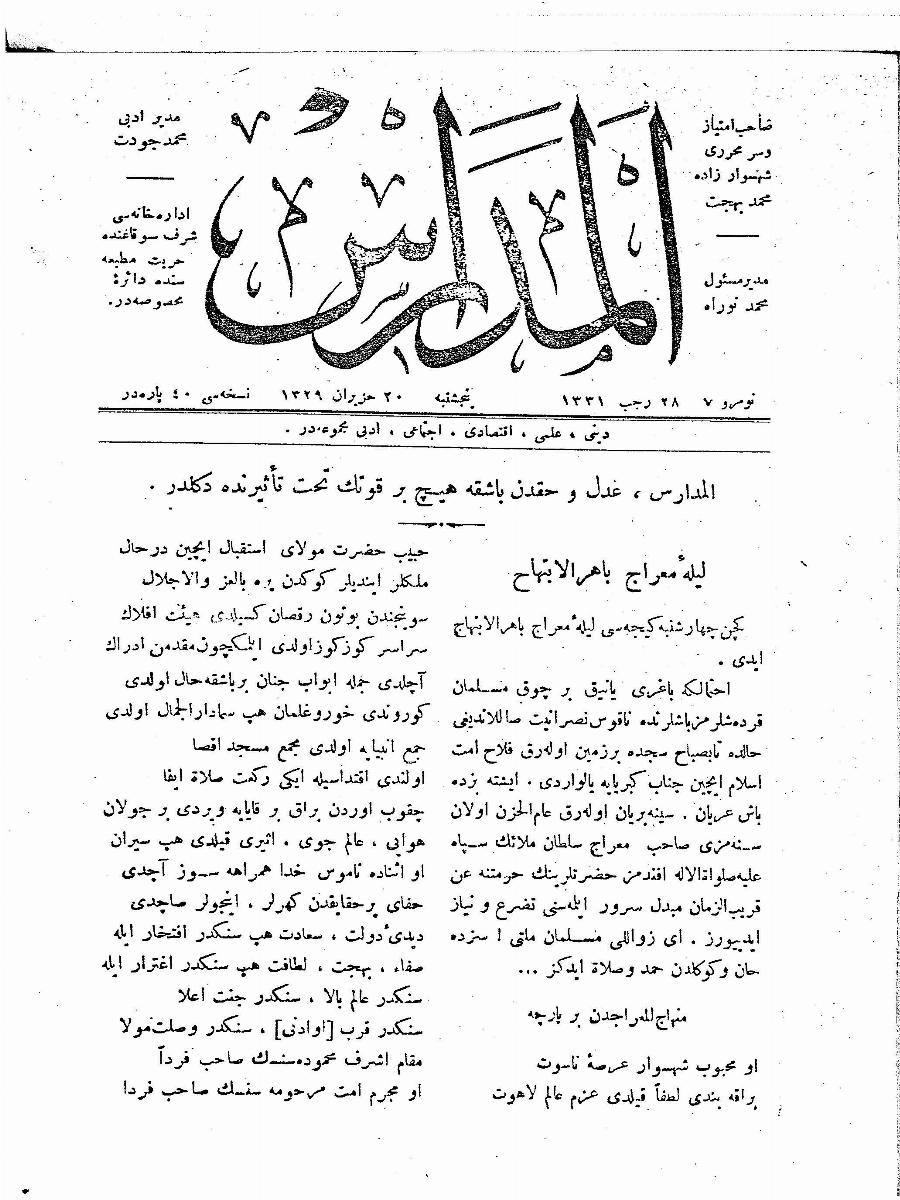 صاحب امتیاز
وسر محرری
شهسوار زاده
محمد بهجت
مدیر مسئول
محمد نوراه
المدارس
مدیر ادبی
محمد جودت
اداره خانه‌سی
شرف سوقاغنده
حریت مطبعه
سنده دائرهٔ
مخصوصه‌در.
نومرو ٧ ٢٨ رجب ١٣٣١ پنجشنبه ٢٠ حزیران ١٣٢٩ نسخه‌سی ٤٠ پاره‌در
دینی ، علمی ، اقتصادی ، اجتماعی ، ادبی مجموعه‌در .
المدارس ، عدل و حقدن باشقه هیچ بر قوتك تحت تأثیرنده دکلدر .
لیلهٔ معراج باهر الابتهاج
کچن چهارشنبه کیجه‌سی لیلهٔ معراج باهر الابتهاج
ایدی .
احتمالکه باغری یانیق بر چوق مسلمان
قرده‌شلرمز باشلرنده ناقوس نصرانیت صاللاندیغی
حالده تابصباح سجده برزمین اوله‌رق فلاح امت
اسلام ایچین جناب کبریایه یالواردی . ایشته بزده
باش عریان . سینه بریان اوله‌رق عام الحزن اولان
سنه‌مزی صاحب معراج سلطان ملائك سپاه
علیه صلواة الاله افندمز حضرتلرینك حرمتنه عن
قریب الزمان مبدل سرور ایله‌سنی تضرع و نیاز
ایدییورز . ای زواللی مسلمان ملتی ! سزده
جان وکوکلدن حمد وصلاة ایدکز ...
منهاج المعراجدن بر پارچه
او محبوب شهسوار عرصهٔ ناسوت
براقه بندی لطفاً قیلدی عزم عالم لاهوت
حبیب حضرت مولای استقبال ایچین درحال
ملکلر ایندیلر کوکدن یره بالعز والاجلال
سوینجندن بوتون رقصان کسیلدی هیئت افلاك
سراسر کوز کوز اولدی ایتمکچون مقدمن ادراك
آچلدی جمله ابواب جنان بر باشقه حال اولدی
کوروندی حور و غلمان هپ سمادار الجمال اولدی
جمع انبیایه اولدی مجمع مسجد اقصا
اولندی اقتداسیله ایکی رکعت صلاة ایفا
چقوب اوردن براق بر قایایه ویردی بر جولان
هوایی ، عالم جوی . اثیری قیلدی هپ سیران
او اثناده ناموس خدا همراهه سوز آچدی
خفای پر حقایقدن کهرلر ، اینجولر صاچدی
دیدی دولت ، سعادت هپ سنکدر افتخار ایله
صفاء ، بهجت ، لطافت هپ سنکدر اغترار ایله
سنکدر عالم بالا ، سنکدر جنت اعلا
سنکدر قرب [اوادنی] ، سنکدر وصلت مولا
مقام اشرف محموده سنسك صاحب فرداً
او مجرم امت مرحومه سنسك صاحب فردا